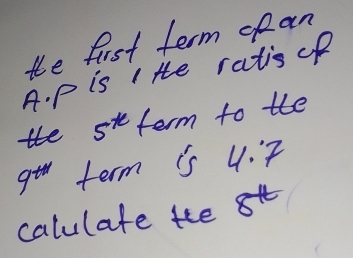 the first term of an
A.P is 1 the ratio of
the 5th term to the
9th term is 4:7
calulate the 8th